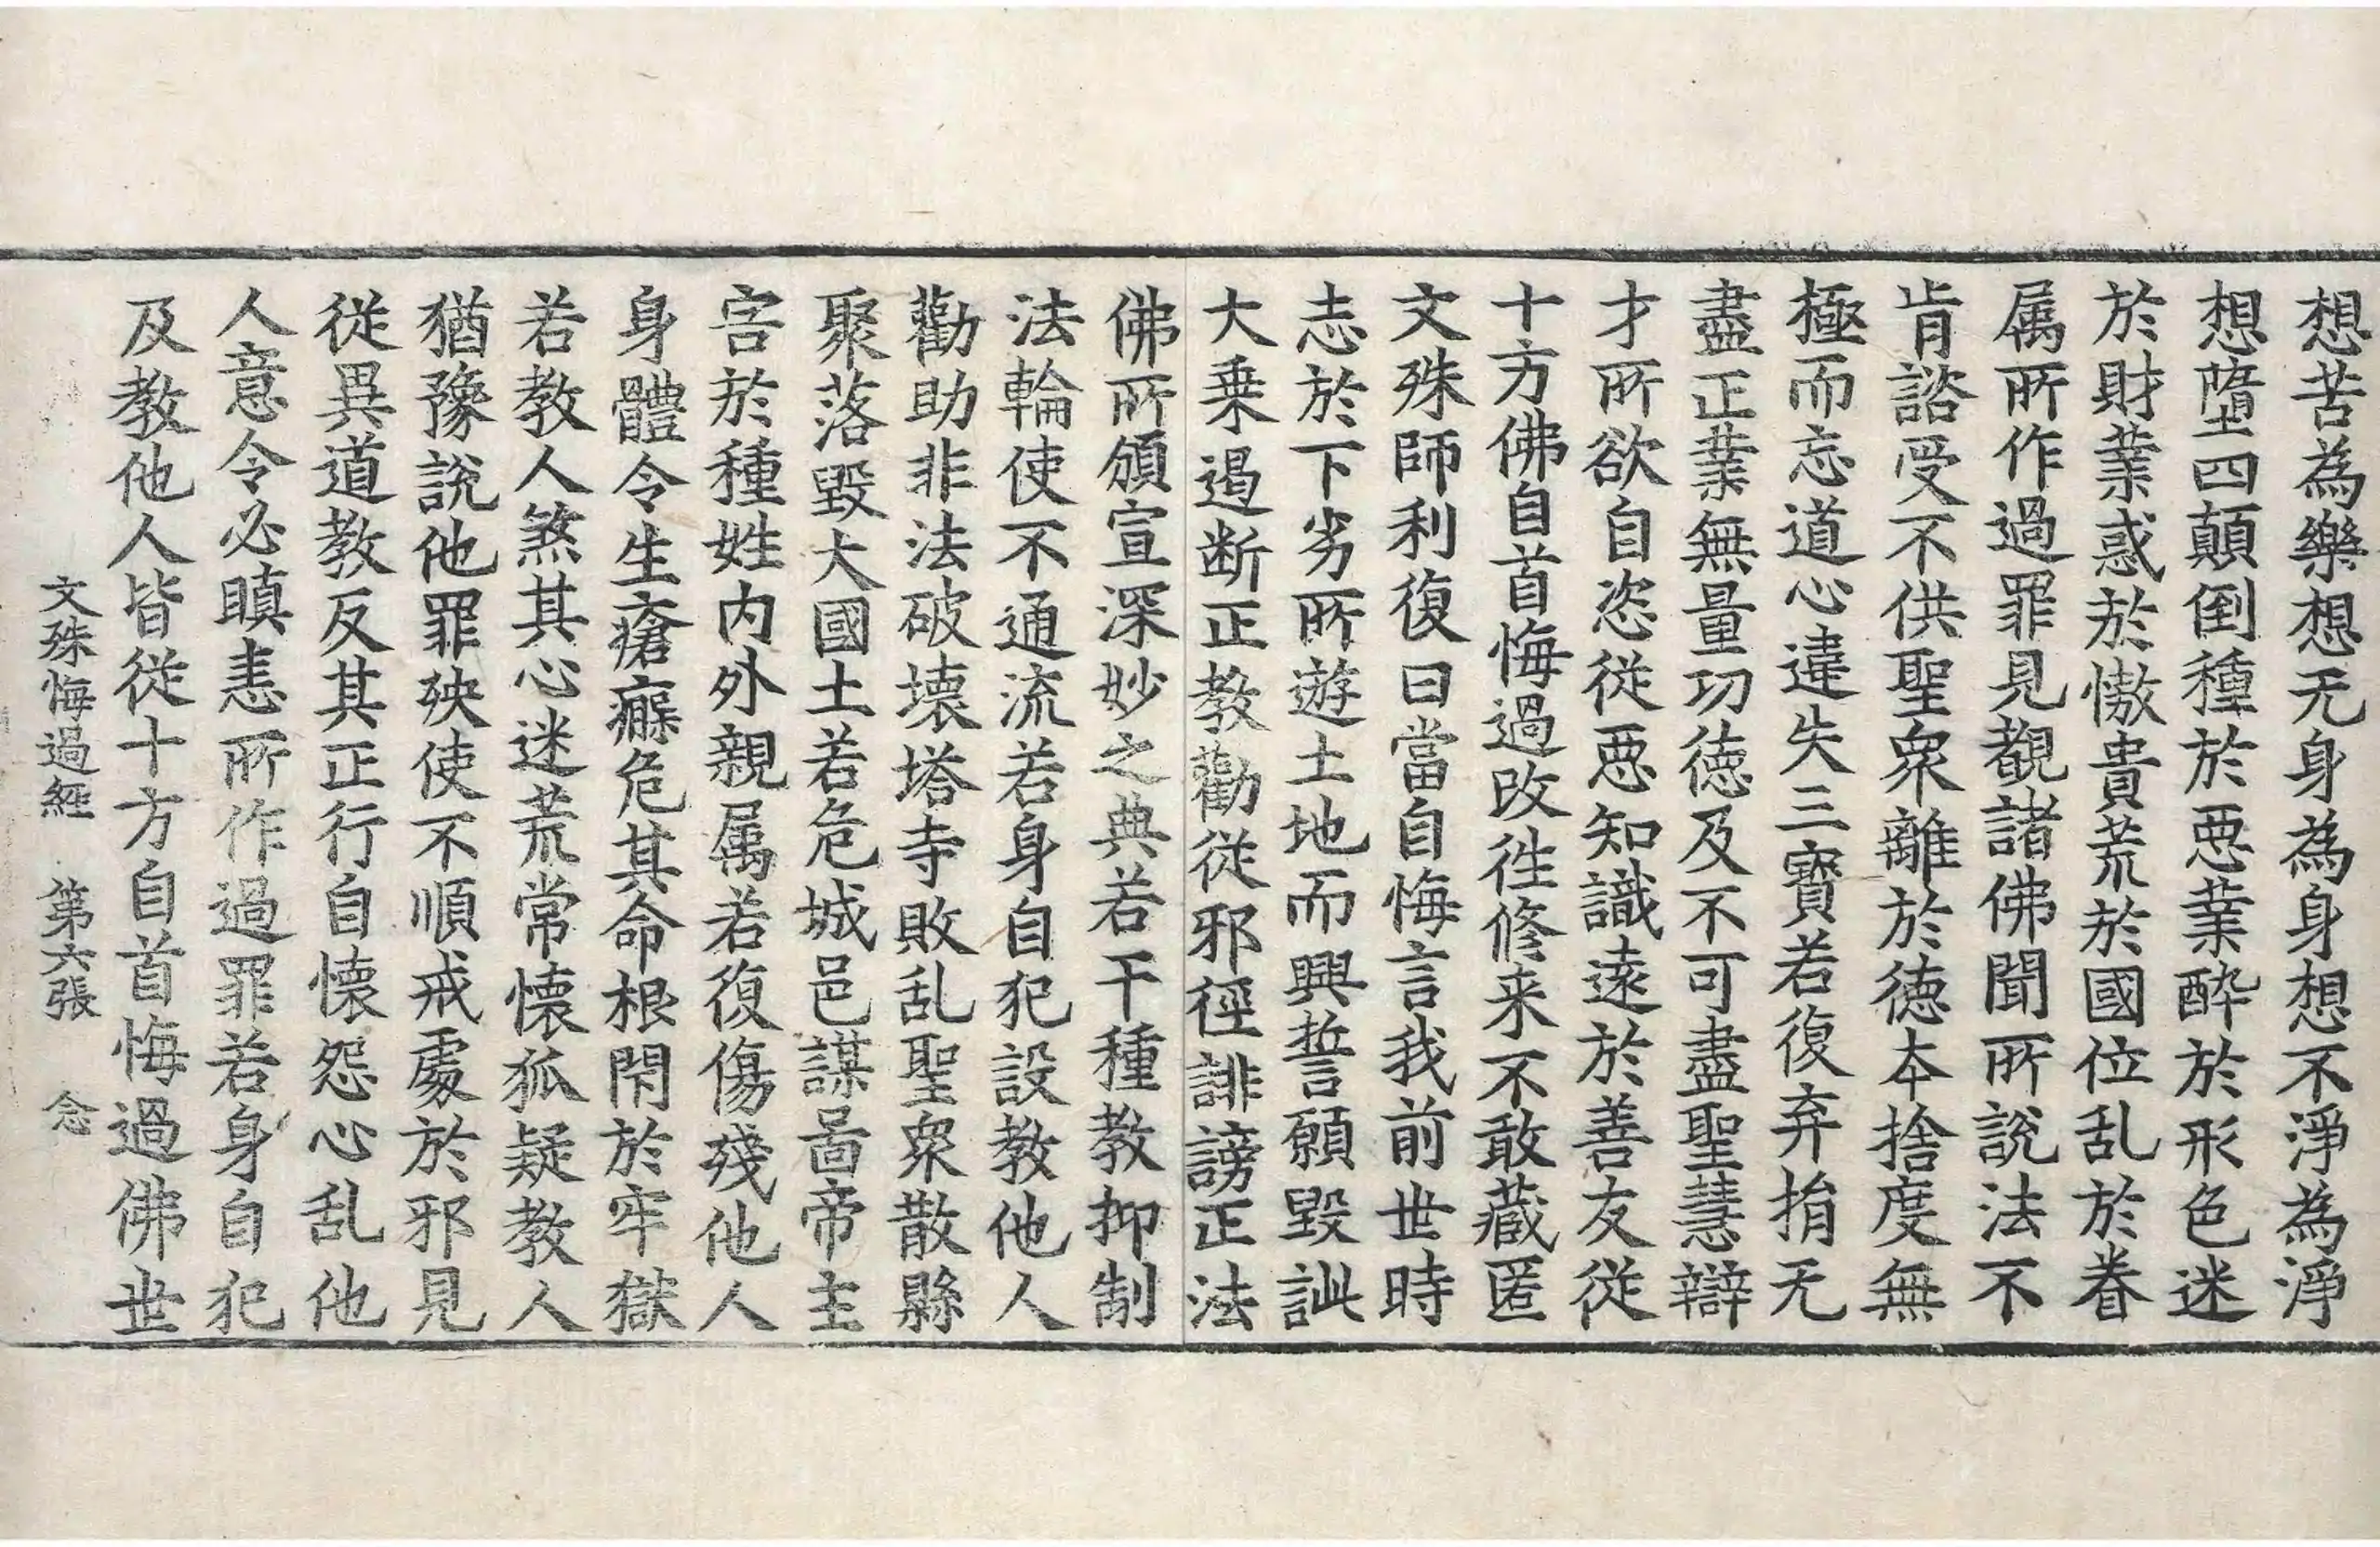 想苦為樂想无身為身想不淨為淨
想墮四顛倒種於惡業酔於形色迷
於財業惑於憿貴荒於國位乱於眷
属所作過罪見覩諸佛聞所說法不
肯諮受不供聖衆離於徳夲捨度無
極而忘道心違失三寶若復弃捐无
盡正業無量功徳及不可盡聖慧辯
才所欲自恣従惡知識遠於善友従
十方佛自首悔過改徃修来不敢藏匿
文殊師利復曰當自悔言我前世時
志於下劣所遊土地而興誓願毀訿
大乗遏断正教勸従邪徑誹謗正法
佛所頒宣深妙之典若干種教抑制
法輪使不通流若身自犯設教他人
勸助非法破壊塔寺敗乱聖衆散縣
聚落毀大國土若危城邑謀啚帝主
害於種姓内外親属若復傷殘他人
身體令生瘡瘢危其命根閇於牢獄
若教人煞其心迷荒常懐狐疑教人
猶豫說他罪殃使不順戒處於邪見
従異道教反其正行自懐怨心乱他
人意令必瞋恚所作過罪若身自犯
及教他人皆従十方自首悔過佛世
文殊悔過經 第六張 念